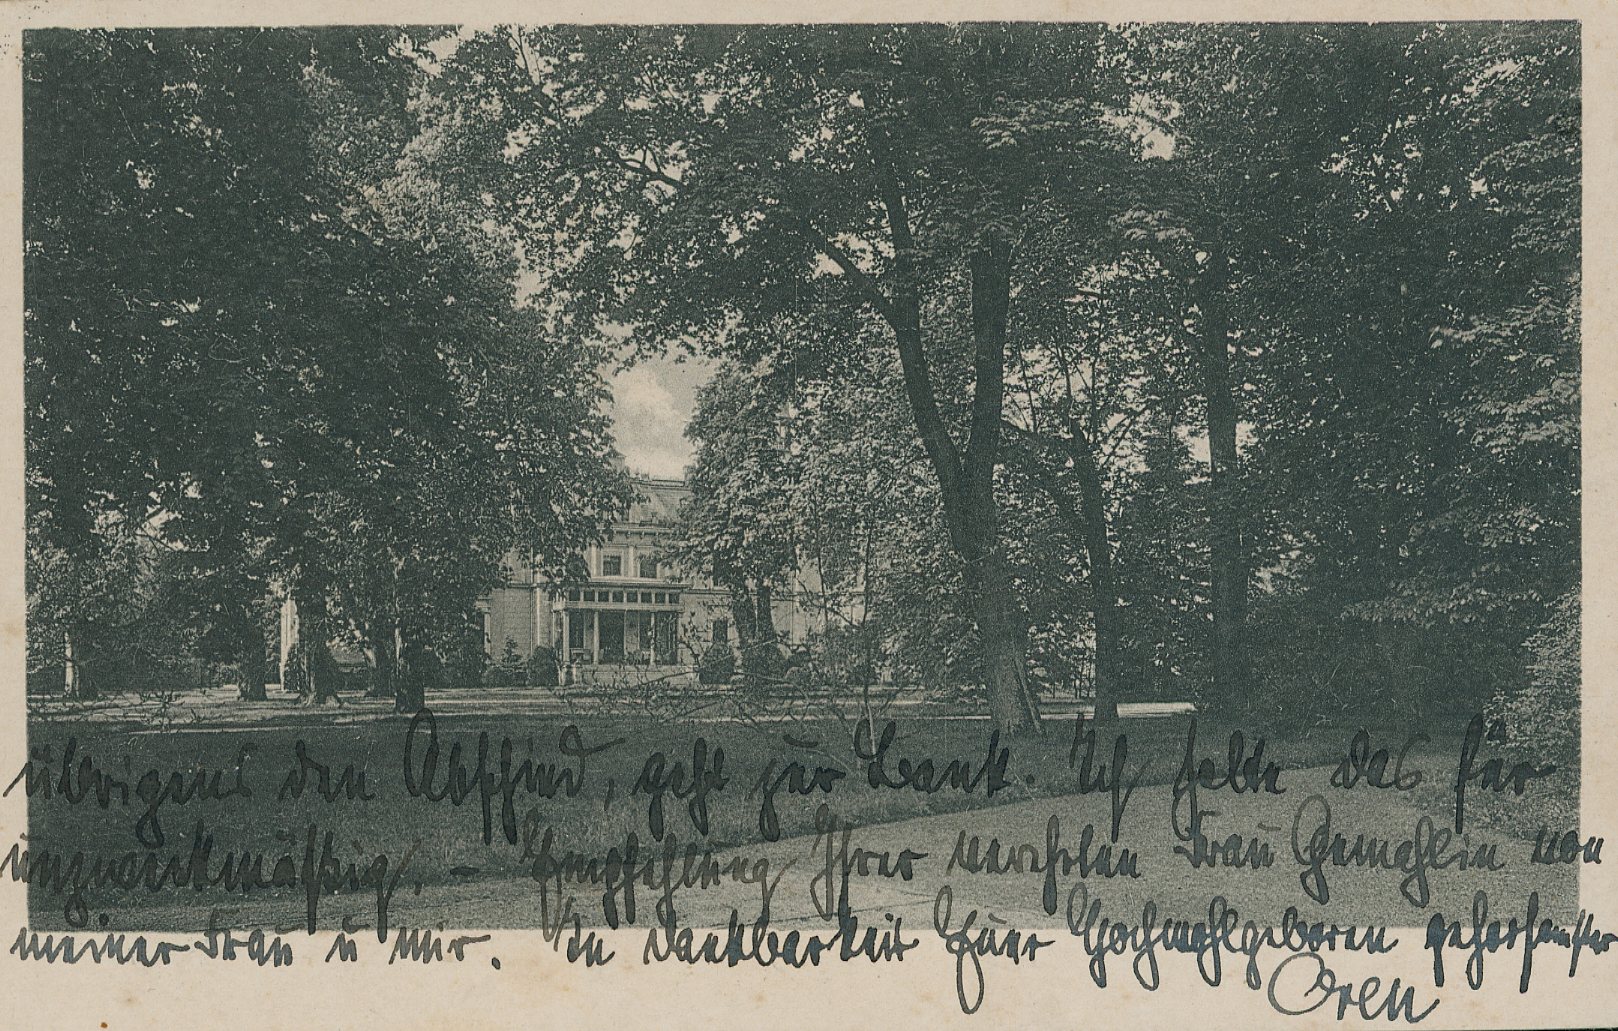 übrigens den Abschied, geht zur Bank. Ich halte das für
unzweckmäßig. – Empfehlung Ihrer verehrten Frau Gemahlin von
meiner Frau u mir. In Dankbarkeit Euer Hochwohlgeboren gehorsamster